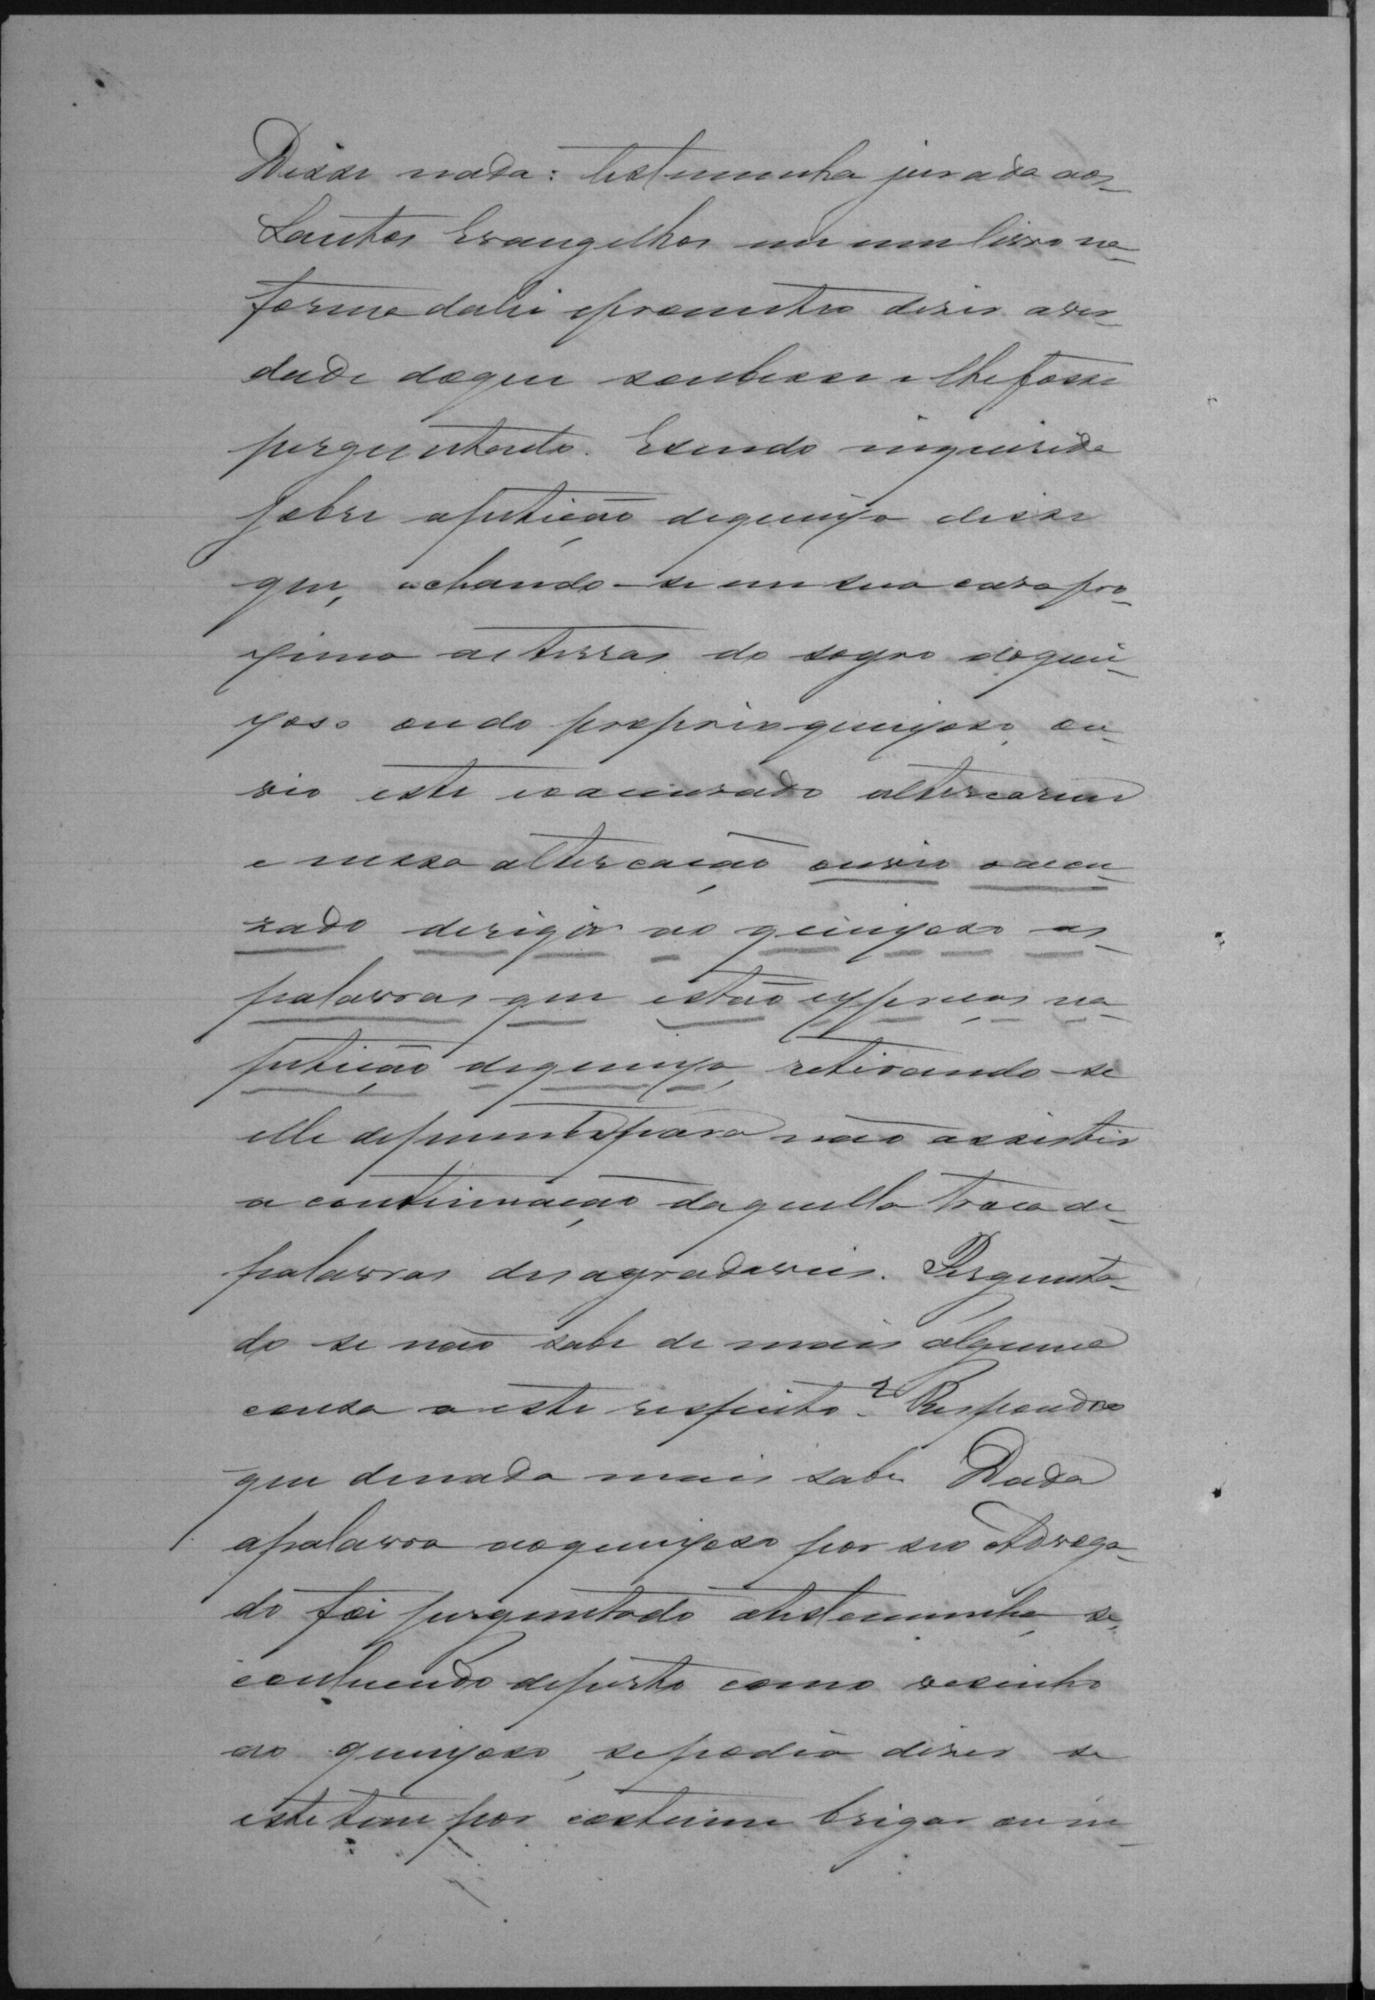 Disse nada: testemunha jurada aos
Santos Evangelhos em um livro na
forma da lei e prometeo diser a ver-
dade do que soubesse e lhe fosse
perguntado. E sendo inquirida
sobre a petição de queixa disse
que, achando-se em sua casa pro-
xima as terras do sogro do quei-
xoso ou do proprio queixoso, ou-
vio este e o accusado altercarem
e nessa altercação ouvio o accu-
zado dirigir ao queixoso as
palavras que estão expreças na
petição de queixa, retirando-se
elle depoente para não assistir
a continuação daquella troca de
palavras desagradaveis. Pergunta-
do se não sabe de mais alguma
cousa a este respeito? Respondeo
que de nada mais sabe. Dada
a palavra ao queixoso por seo Advoga-
do foi perguntado a testemunha, se,
conhecendo de perto como vesinho
ao queixoso, se podia diser se
este tem por costume brigar ou in-